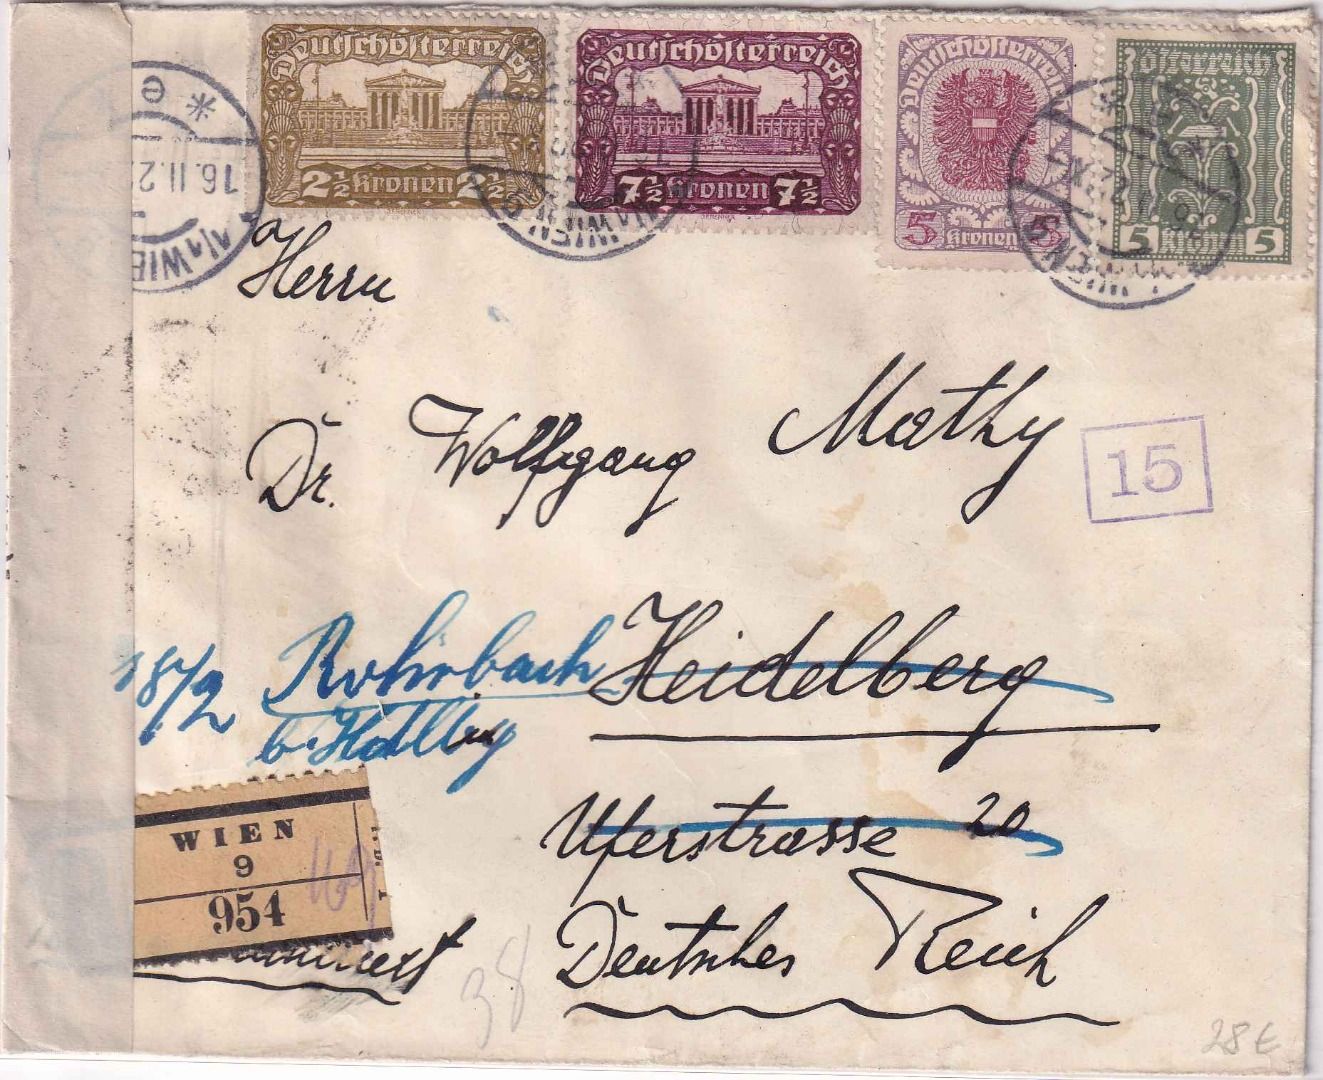 Deutschösterreich
2½ Kronen 2½
Deutschösterreich
7½ Kronen 7½
Deutschösterreich
5 Kronen 5
Österreich
5 Kronen 5
16.II.2
WIEN
Herrn
Dr. Wolfgang Mathy
15
18/2 Rohrbach Heidelberg
b. Hdlbg
Uferstrasse 20
Deutsches Reich
WIEN
9
954
38
28€